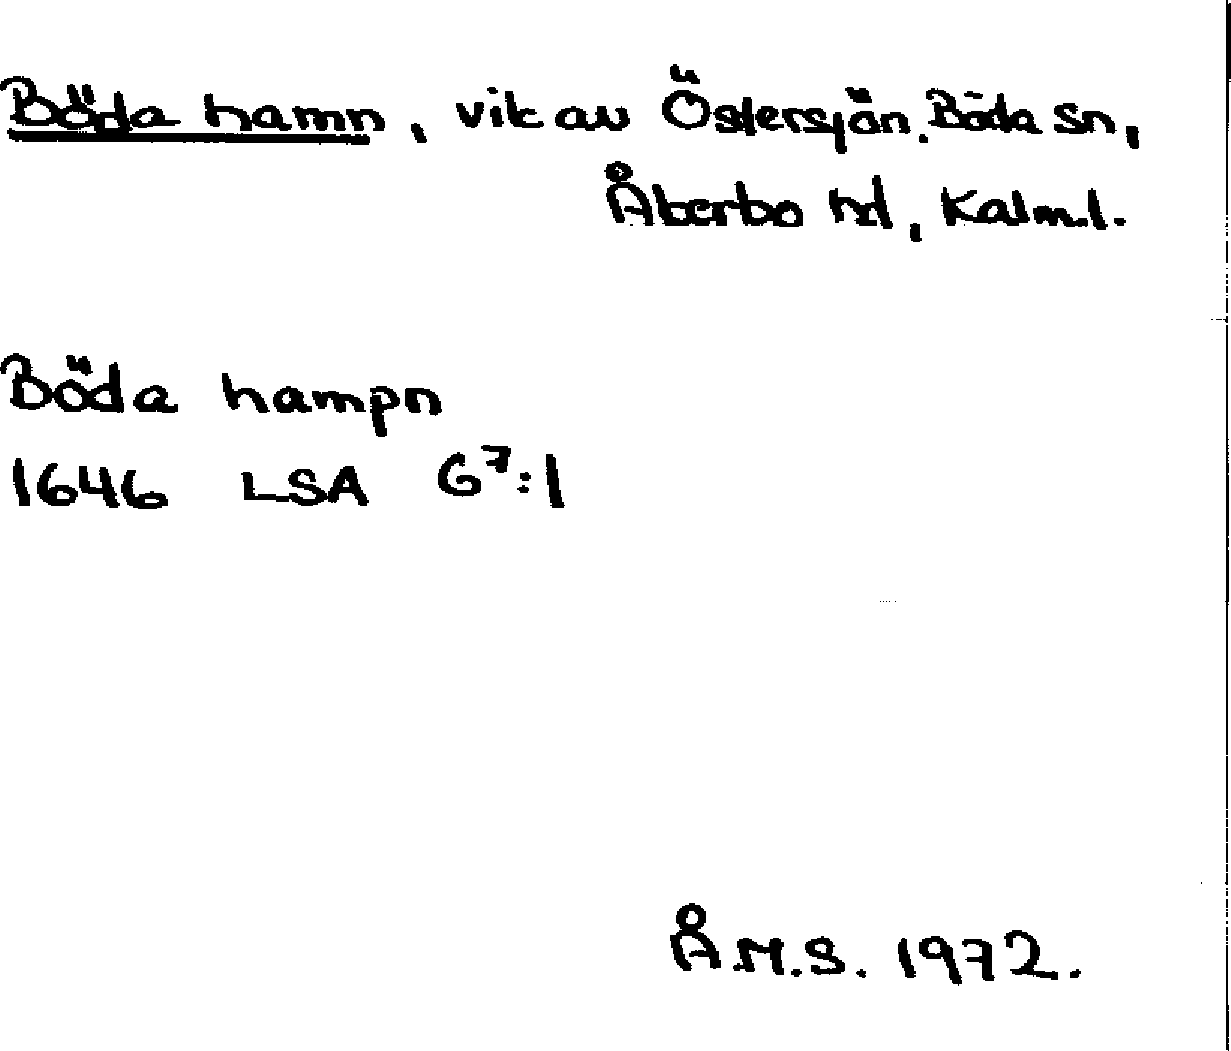 Böda hamn, vik av Östersjön. Böda sn,
Åkerbo hd, Kalm.l.
Böda hampn
1646 LSA G⁷:1
Å.M.S. 1972.